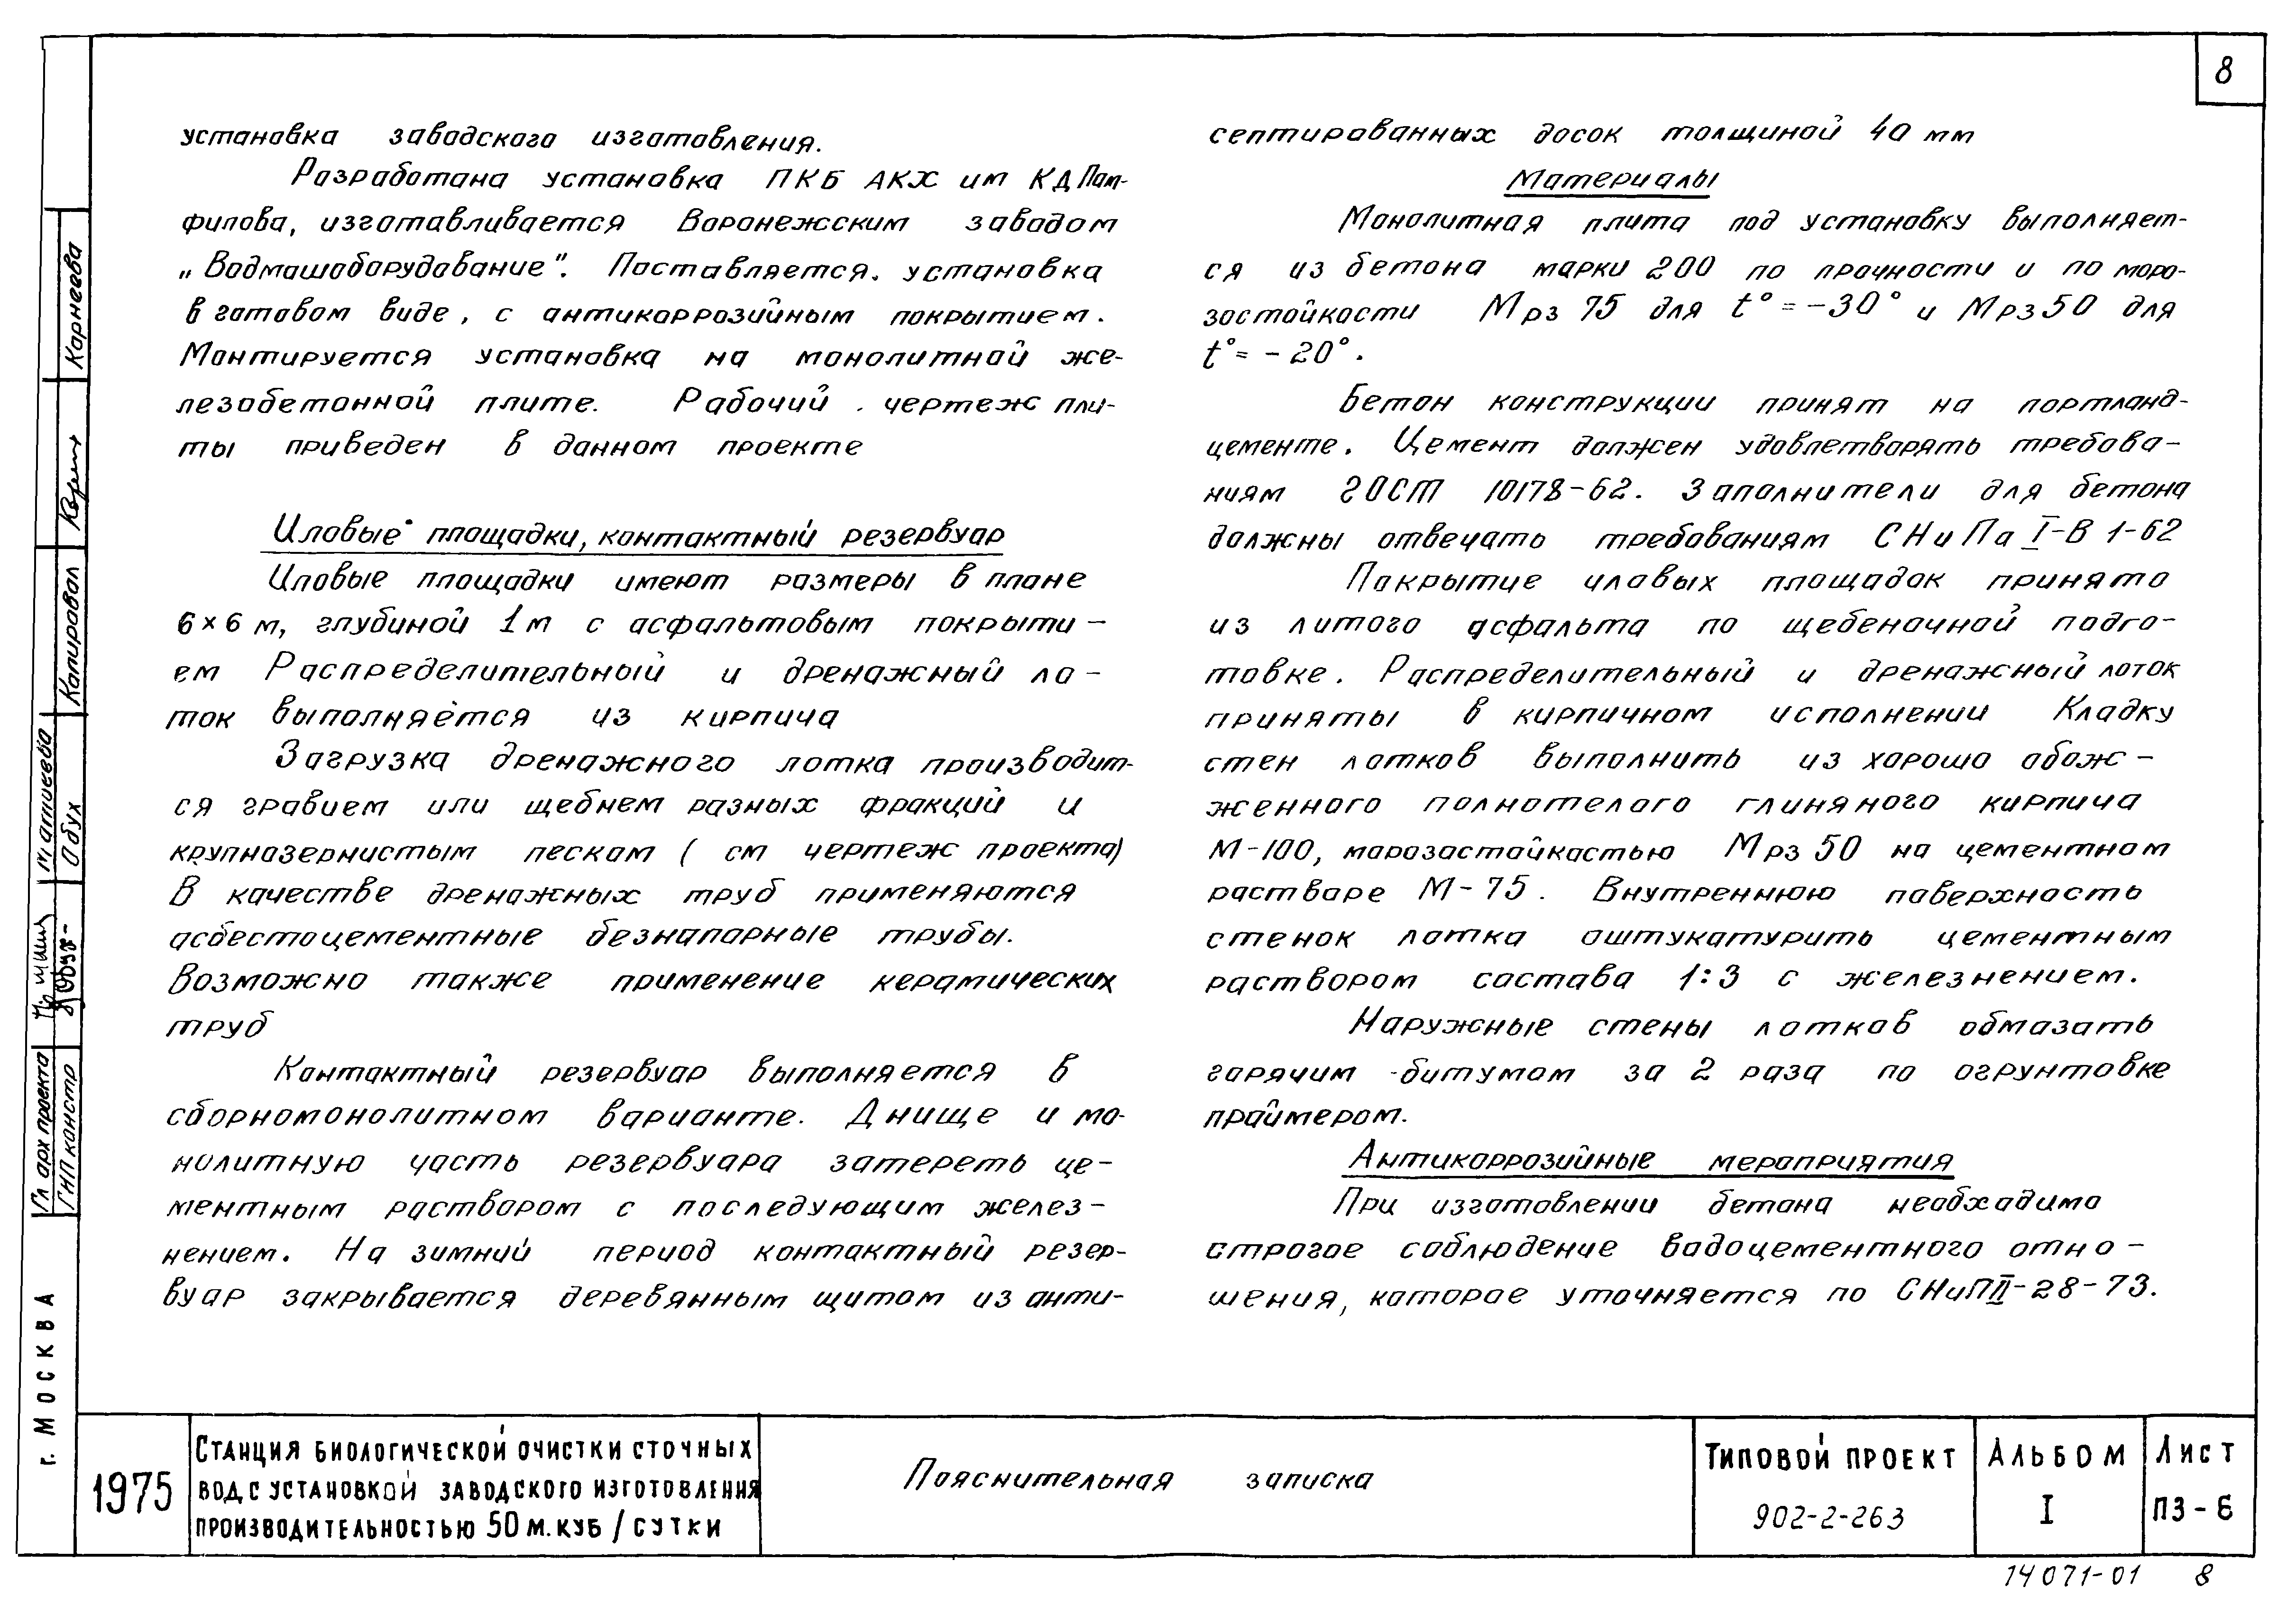 8
установка заводского изготовления.
Разработана установка ПКБ АКХ им КД Пам-
филова, изготавливается Воронежским заводом
„Водмашоборудование". Поставляется. установка
в готовом виде, с антикоррозийным покрытием.
Монтируется установка на монолитной же-
лезобетонной плите. Рабочий чертеж пли-
ты приведен в данном проекте
Иловые площадки, контактный резервуар
Иловые площадки имеют размеры в плане
6×6 м, глубиной 1м с асфальтовым покрыти-
ем Распределительный и дренажный ло-
ток выполняется из кирпича
Загрузка дренажного лотка производит-
ся гравием или щебнем разных фракций и
крупнозернистым песком ( см чертеж проекта)
В качестве дренажных труб применяются
асбестоцементные безнапорные трубы.
Возможно также применение керамических
труб
Контактный резервуар выполняется в
сборномонолитном варианте. Днище и мо-
нолитную часть резервуара затереть це-
ментным раствором с последующим желез-
нением. На зимний период контактный резер-
вуар закрывается деревянным щитом из анти-
септированных досок толщиной 40 мм
Материалы
Монолитная плита под установку выполняет-
ся из бетона марки 200 по прочности и по моро-
зостойкости Мрз 75 для t° = -30° и Мрз 50 для
t° = -20°.
Бетон конструкции принят на портланд-
цементе. Цемент должен удовлетворять требова-
ниям ГОСТ 10178-62. Заполнители для бетона
должны отвечать требованиям СНиПа I-В 1-62
Покрытие иловых площадок принято
из литого асфальта по щебеночной подго-
товке. Распределительный и дренажный лоток
приняты в кирпичном исполнении Кладку
стен лотков выполнить из хорошо обож-
женного полнотелого глиняного кирпича
М-100, морозостойкостью Мрз 50 на цементном
растворе М-75. Внутреннюю поверхность
стенок лотка оштукатурить цементным
раствором состава 1:3 с железнением.
Наружные стены лотков обмазать
горячим битумом за 2 раза по огрунтовке
праймером.
Антикоррозийные мероприятия
При изготовлении бетона необходимо
строгое соблюдение водоцементного отно-
шения, которое уточняется по СНиП II-28-73.
Корнеева
Копировал
Матиева
Обух
Гл арх проекта
ГИП констр
г. МОСКВА
1975
СТАНЦИЯ БИОЛОГИЧЕСКОЙ ОЧИСТКИ СТОЧНЫХ
ВОД С УСТАНОВКОЙ ЗАВОДСКОГО ИЗГОТОВЛЕНИЯ
ПРОИЗВОДИТЕЛЬНОСТЬЮ 50 М.КУБ / СУТКИ
Пояснительная записка
ТИПОВОЙ ПРОЕКТ
902-2-263
АЛЬБОМ
I
ЛИСТ
ПЗ-6
14071-01 8